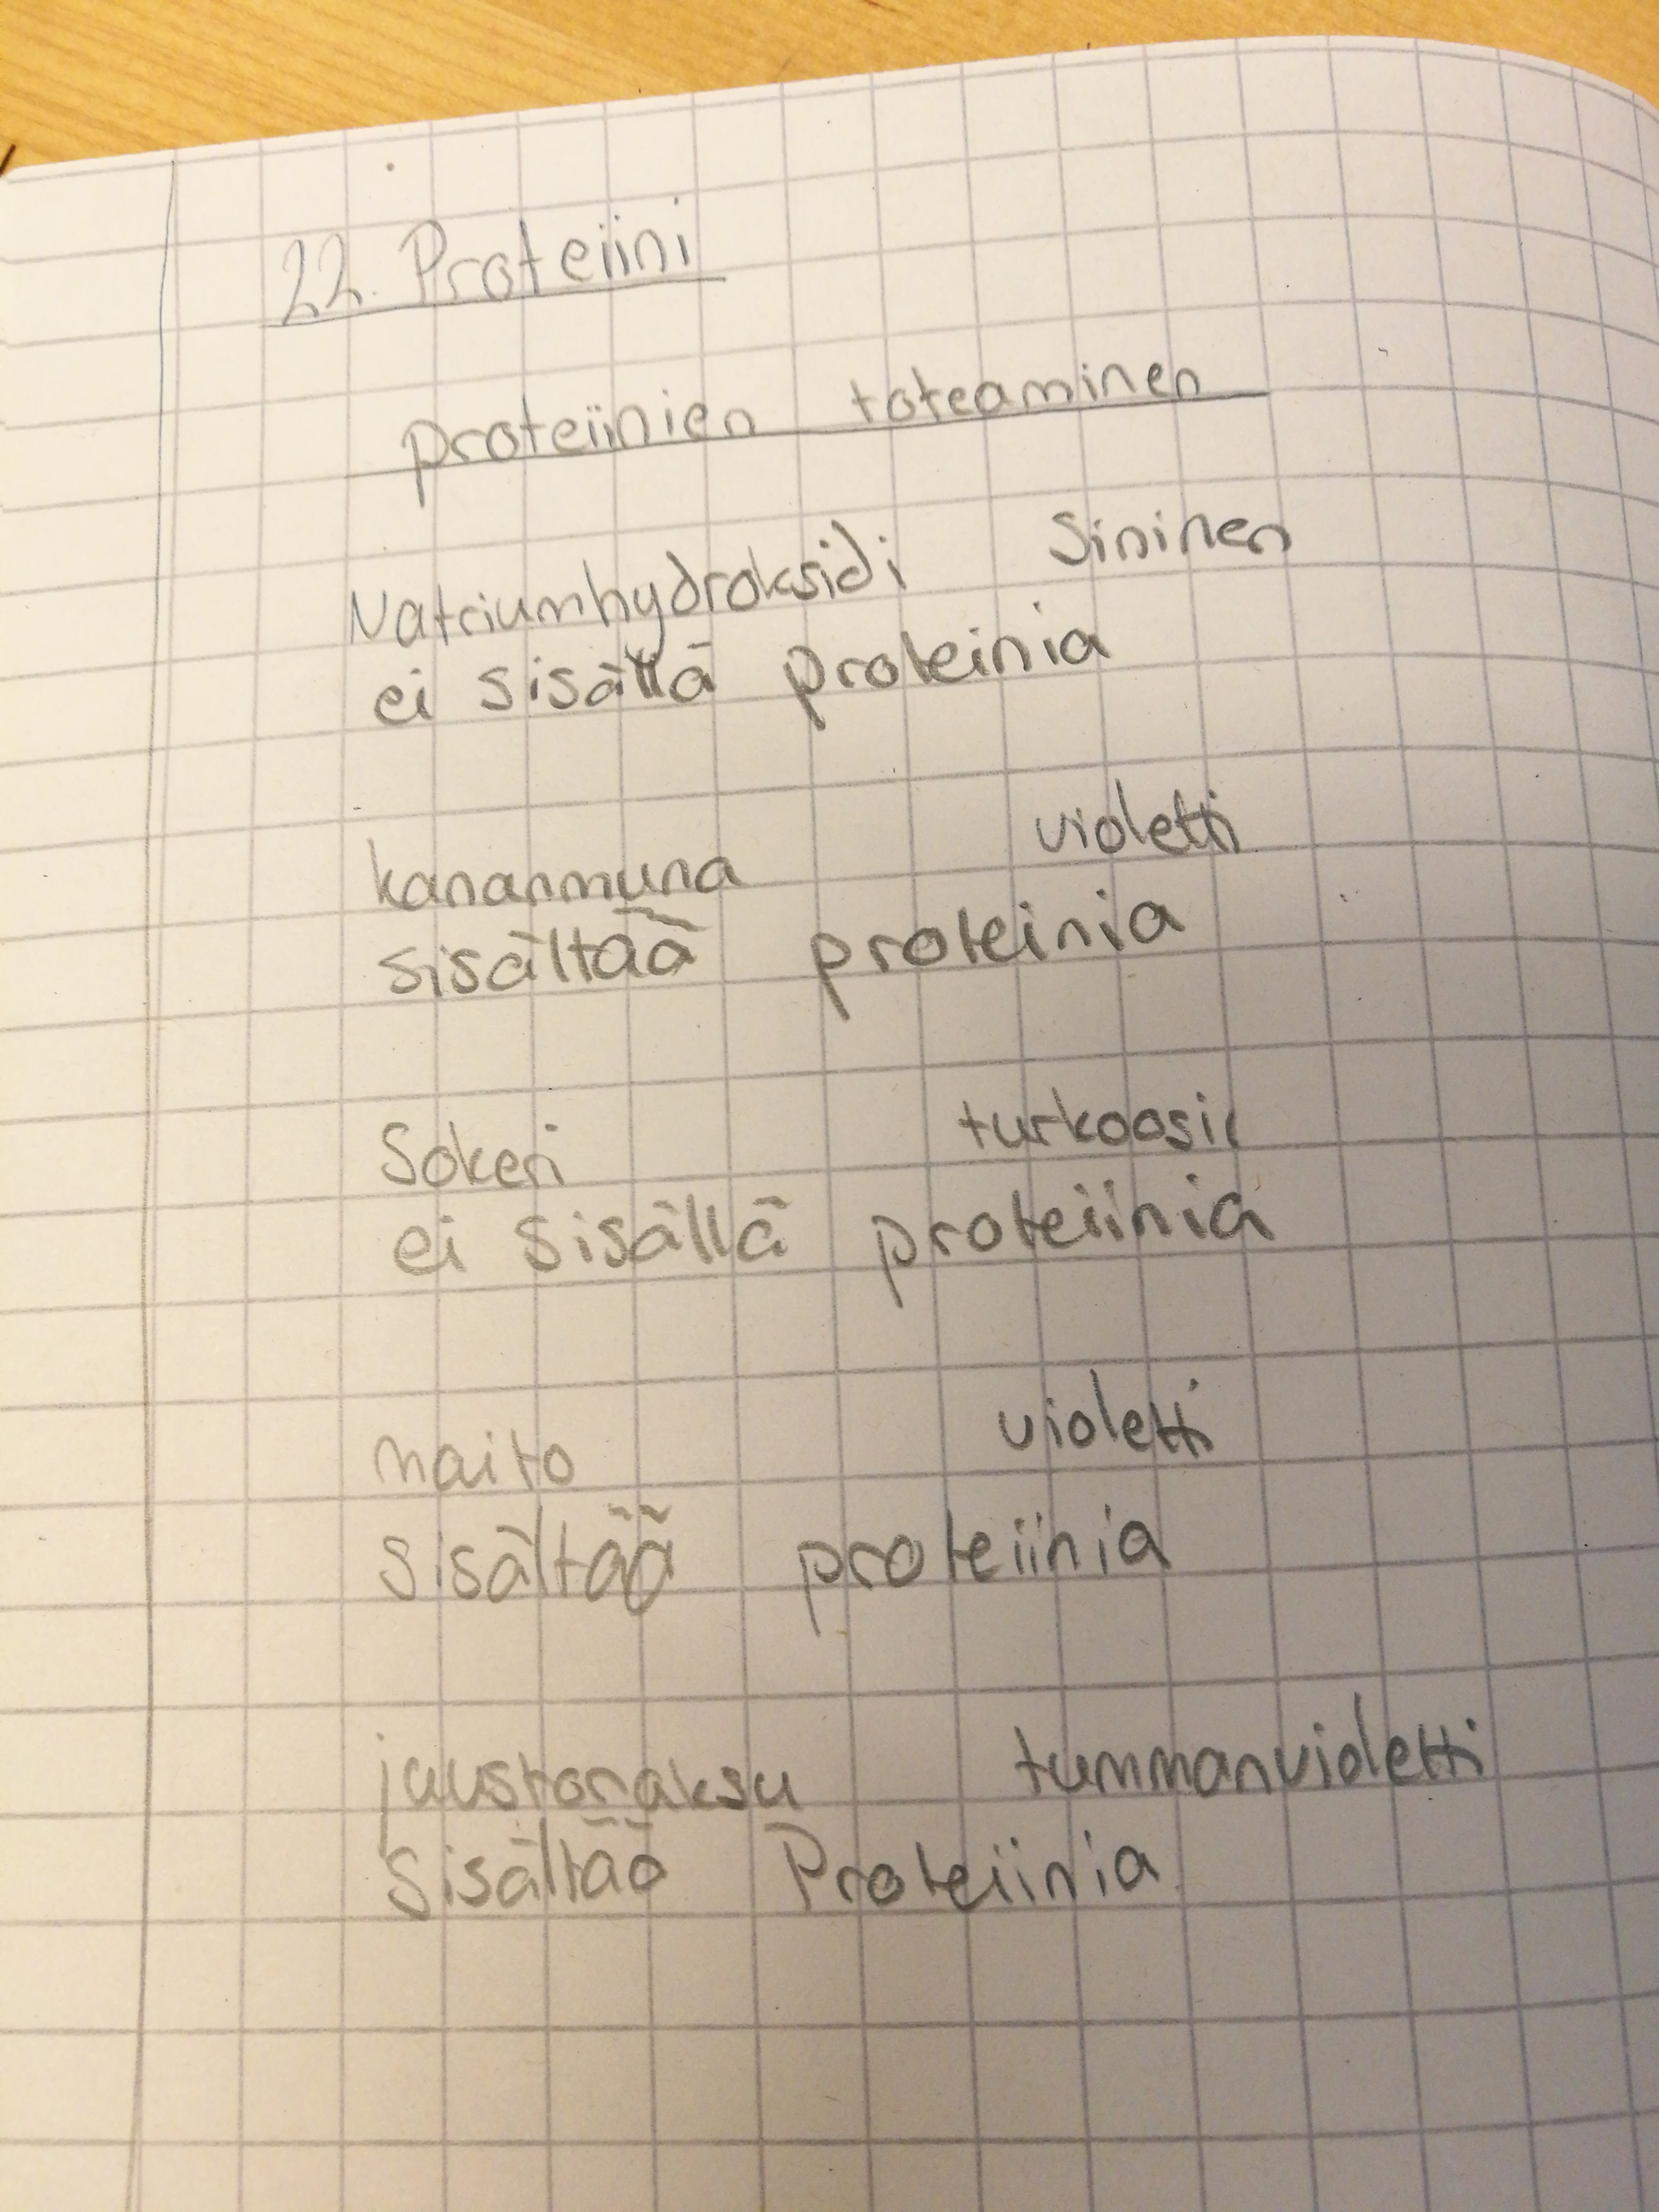 22. Proteiini
proteiinien toteaminen
Natriumhydroksidi Sininen
ei sisällä proteinia
kananmuna violetti
sisältää proteinia
Sokeri turkoosi
ei sisällä proteiinia
maito violetti
sisältää proteiinia
juustonaksu tummanvioletti
Sisältää Proteiinia